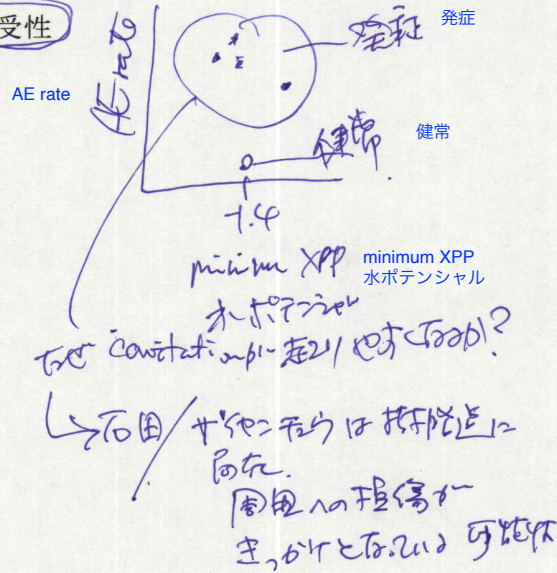 受性
発症
発症
AE rate
AE rate
健常
健常
-1.4
minimum XPP
minimum XPP
水ポテンシャル
水ポテンシャル
なぜ cavitationが起こりやすくなるか?
ザイセンチュウは
周囲への損傷が
きっかけとなっている 可能性